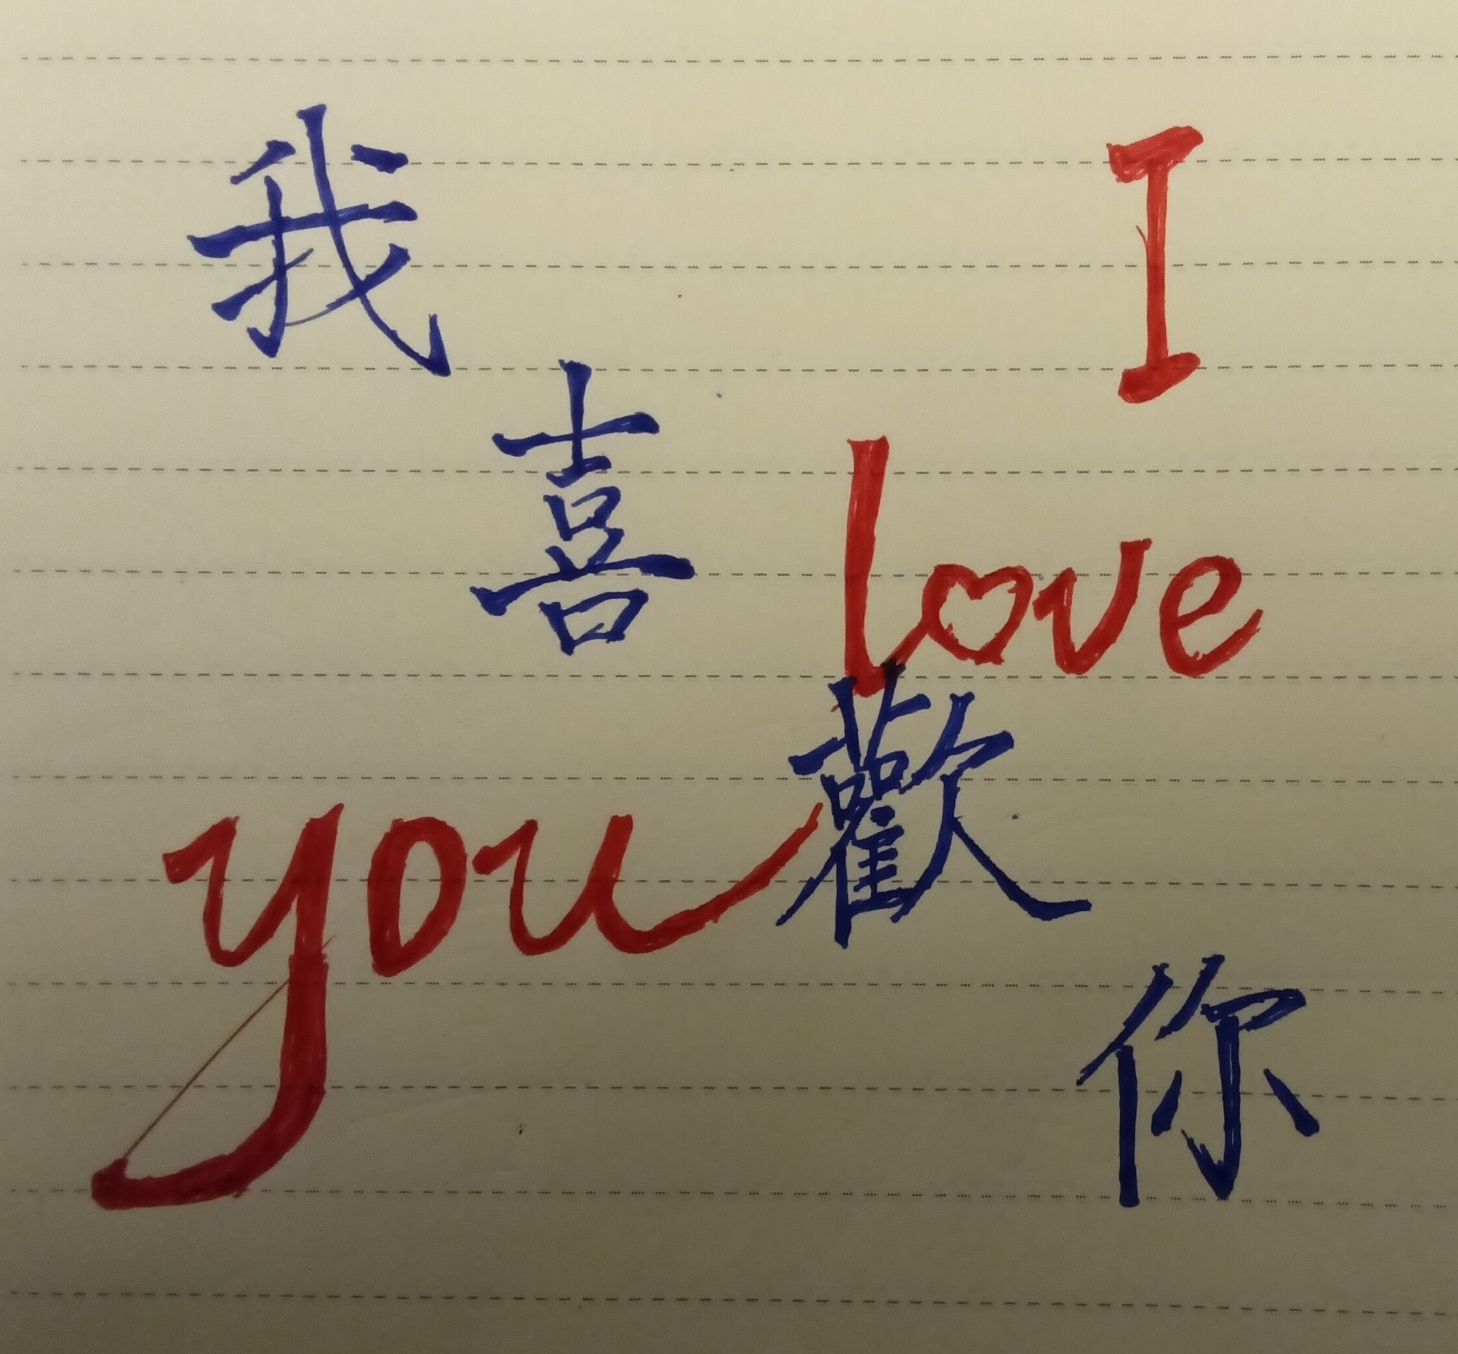 我喜歡你
I
love
you